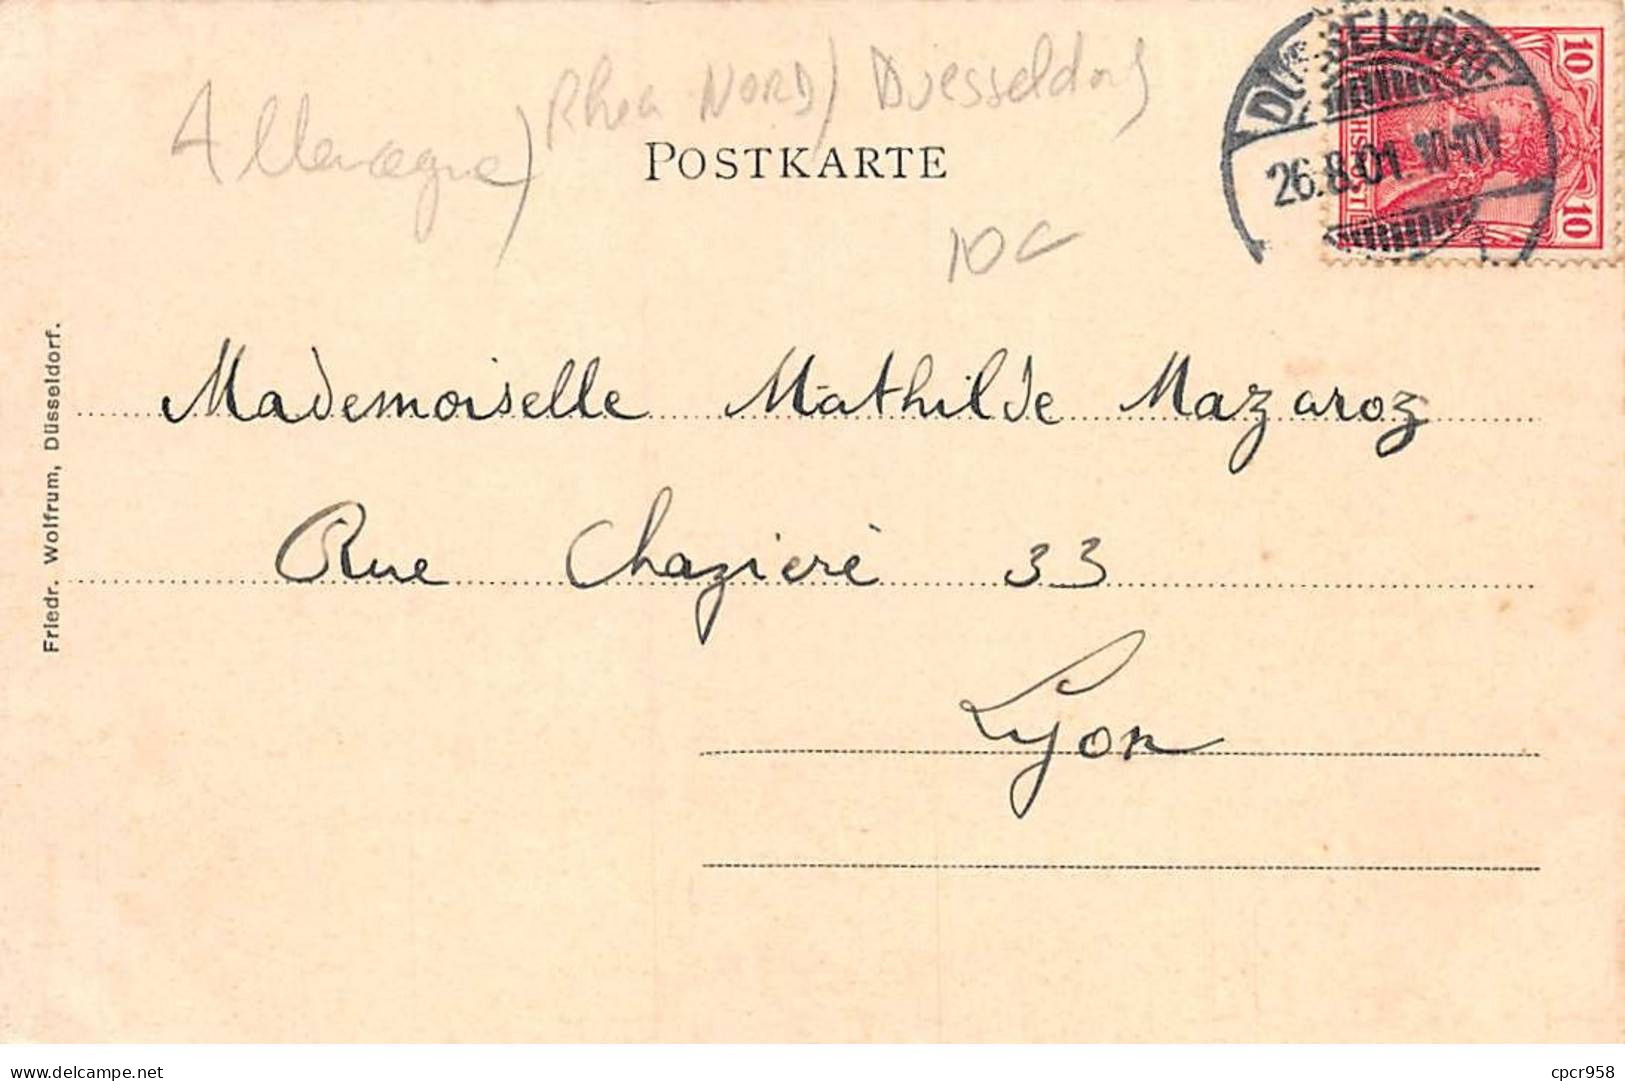 Allemagne) Rhea NORD) Duesseldorf
POSTKARTE
10
10
DÜSSELDORF
26.8.01. 10-11V
10 c
Friedr. Wolfrum, Düsseldorf.
Mademoiselle Mathilde Mazaroz
Rue Chazière 33
Lyon
cpcr958